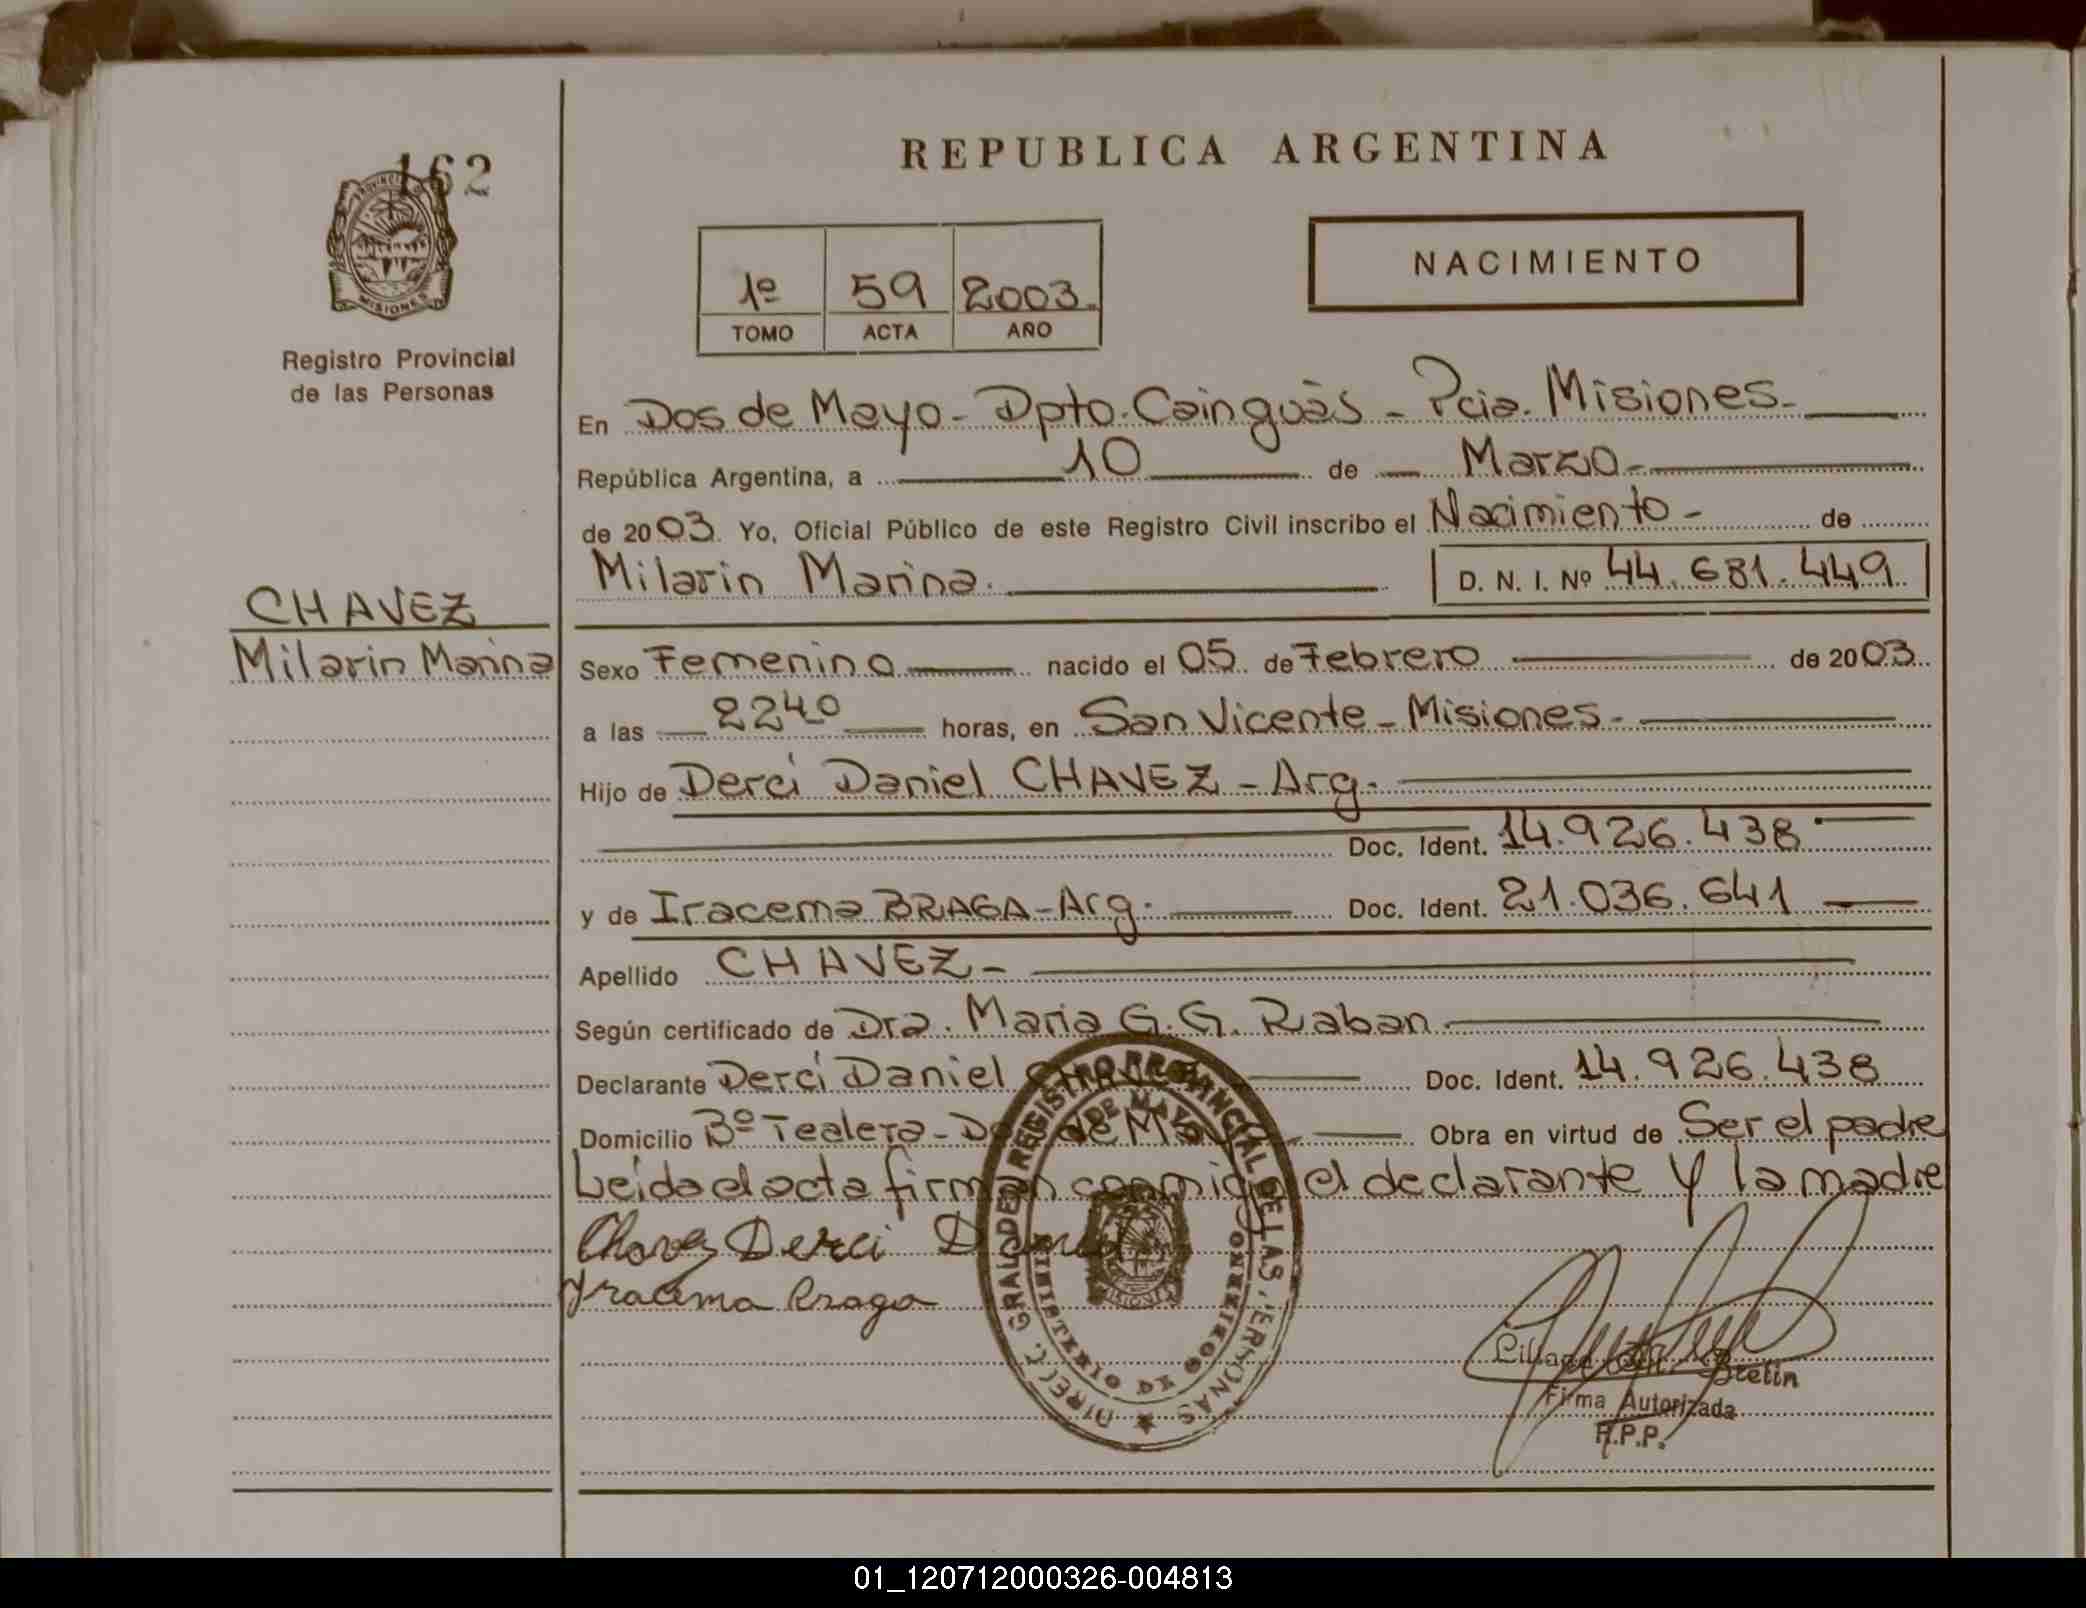 162
PROVINCIA DE
MISIONES
Registro Provincial
de las Personas
CHAVEZ
Milarin Marina
REPUBLICA ARGENTINA
1º 59 2003.
TOMO ACTA AÑO
NACIMIENTO
En Dos de Mayo - Dpto. Cainguàs - Pcia. Misiones -
República Argentina, a 10 de Marzo -
de 2003. Yo, Oficial Público de este Registro Civil inscribo el Nacimiento - de
Milarin Marina. D. N. I. Nº 44.681.449
Sexo Femenino nacido el 05 de Febrero de 2003.
a las 2240 horas, en San Vicente - Misiones -
Hijo de Derci Daniel CHAVEZ - Arg.
Doc. Ident. 14.926.438
y de Iracema BRAGA - Arg. Doc. Ident. 21.036.641
Apellido CHAVEZ -
Según certificado de Dra. Maria G. G. Raban
Declarante Derci Daniel CHAVEZ Doc. Ident. 14.926.438
Domicilio Bº Tealera - Dos de Mayo Obra en virtud de Ser el padre
Leida el acta firman conmigo el declarante y la madre
Chavez Derci Daniel
Iracema Braga
DIREC. GRAL. DEL REGISTRO PROVINCIAL DE LAS PERSONAS
DOS DE MAYO
MINISTERIO DE GOBIERNO
MISIONES
Firma Autorizada
R.P.P.
01_120712000326-004813